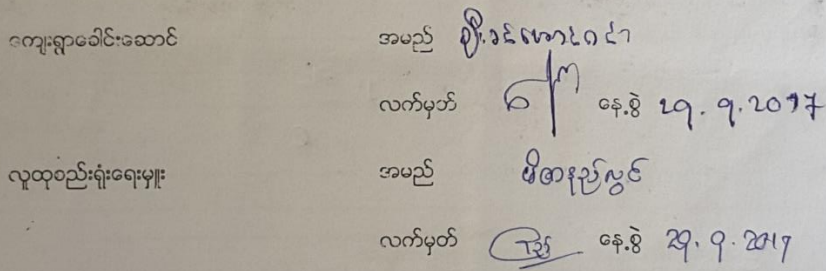 ကျေးရွာခေါင်းဆောင် အမည်
လက်မှတ် နေ့စွဲ 29. 9. 2017
လူထုစည်းရုံးရေးမှူး အမည် မိဇာနည်လွင်
လက်မှတ် နေ့စွဲ 29. 9. 2017